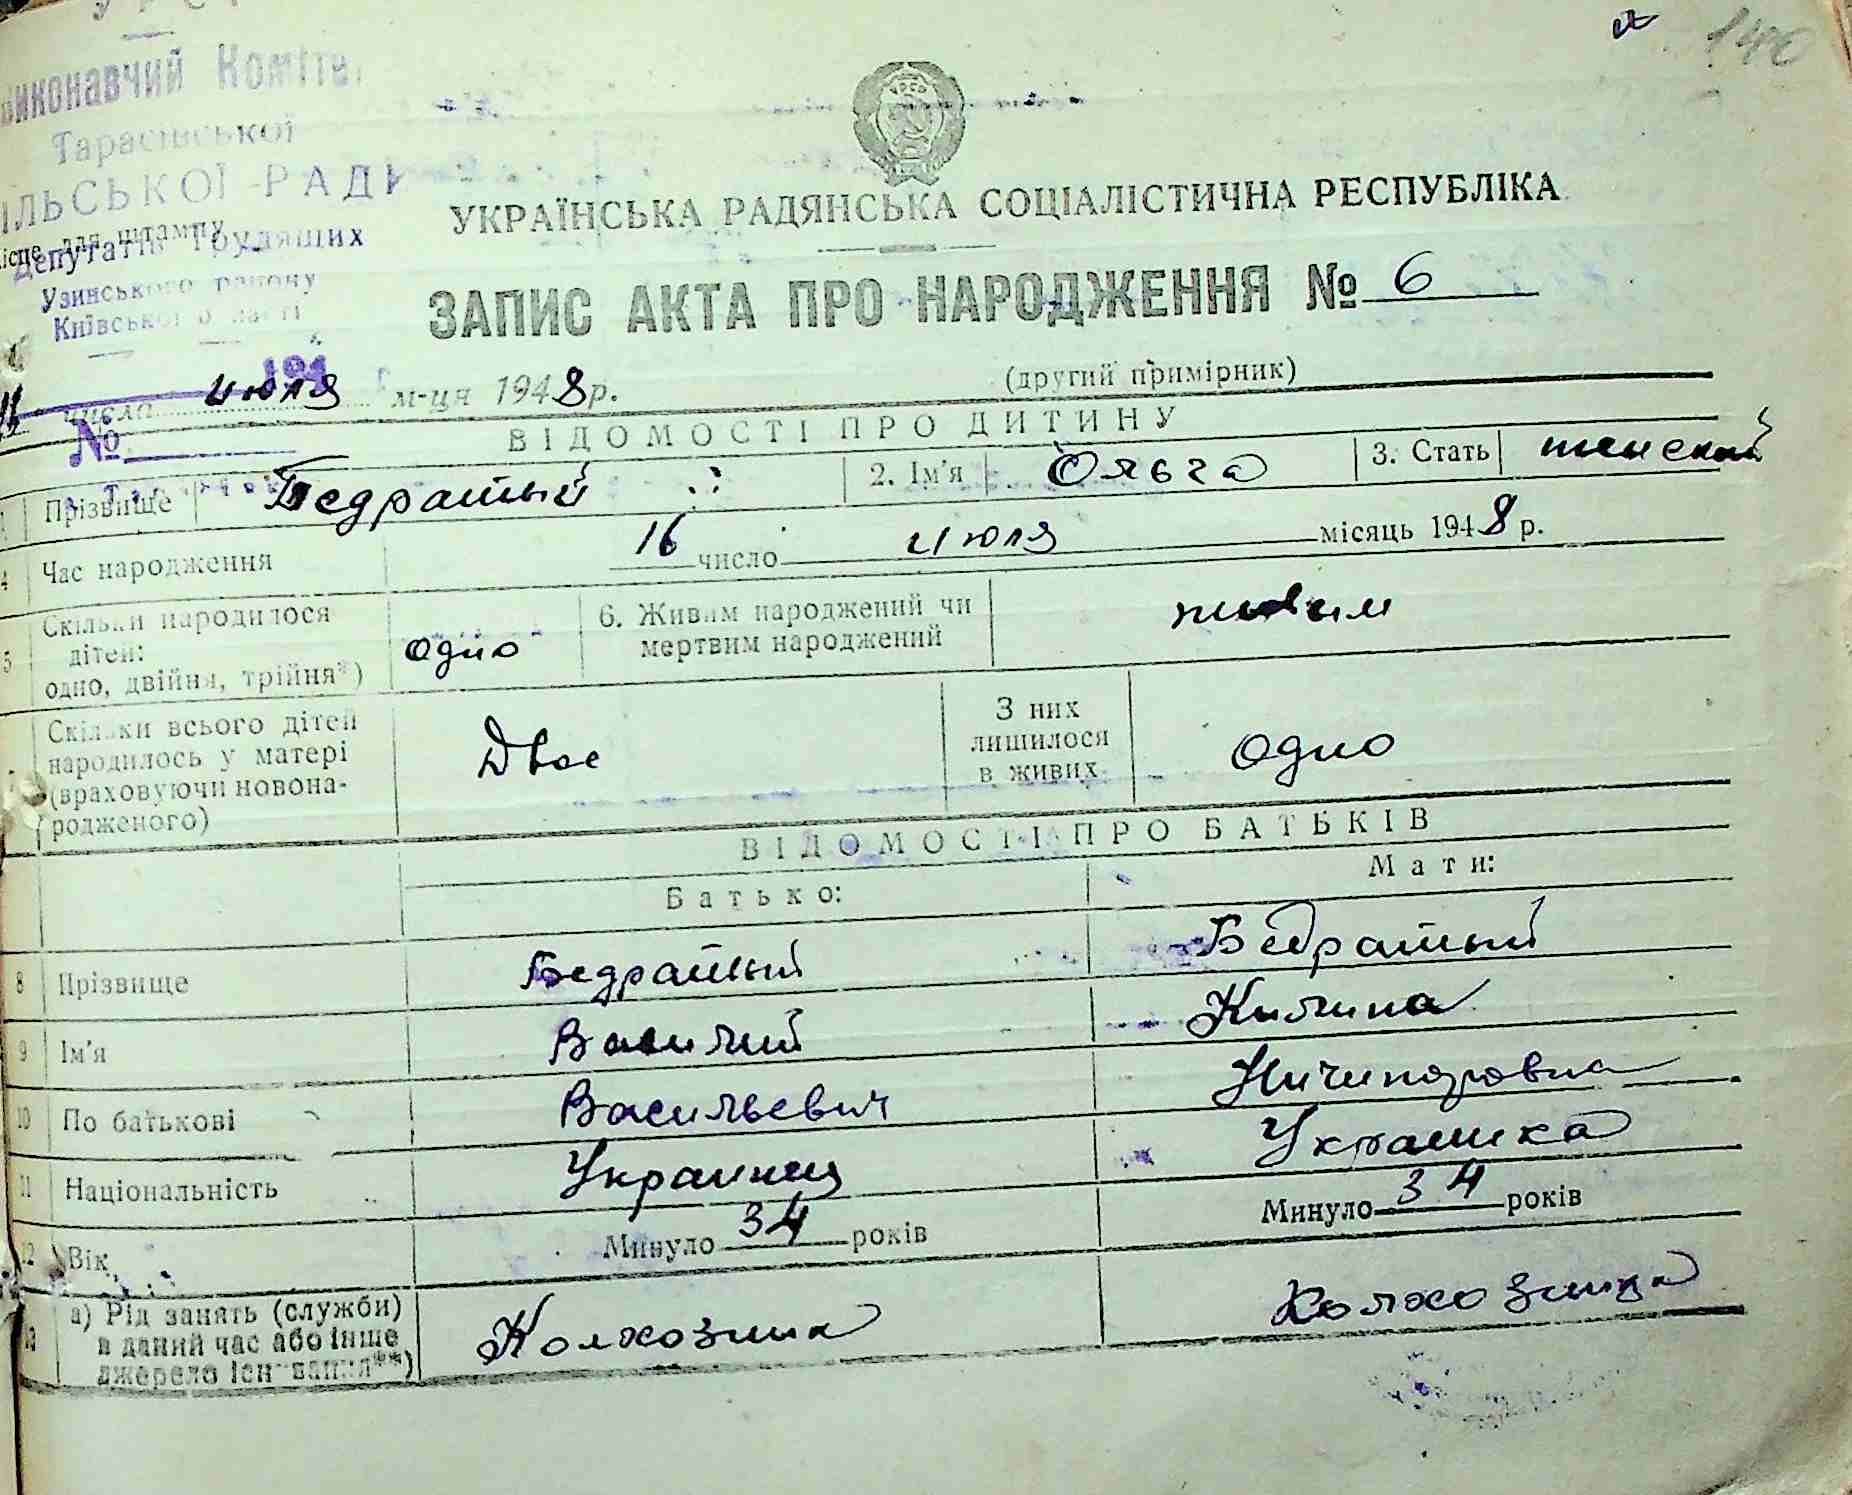 140
Виконавчий Комітет
Тарасівської
СІЛЬСЬКОЇ РАДИ
Місце для штампу
Депутатів Трудящих
Узинського району
Київської області
УКРАЇНСЬКА РАДЯНСЬКА СОЦІАЛІСТИЧНА РЕСПУБЛІКА
ЗАПИС АКТА ПРО НАРОДЖЕННЯ № 6
(другий примірник)
числа июля м-ця 1948 р.
№
ВІДОМОСТІ ПРО ДИТИНУ
Прізвище Бедратый 2. Ім'я Ольга 3. Стать женский
4 Час народження 16 число июля місяць 1948 р.
5 Скільки народилося дітей: одно, двійня, трійня*) одно 6. Живим народжений чи мертвим народжений живым
Скільки всього дітей народилось у матері (враховуючи новонародженого) Двое З них лишилося в живих Одно
ВІДОМОСТІ ПРО БАТЬКІВ
Батько: Мати:
8 Прізвище Бедратый Бедратый
9 Ім'я Василий Килина
10 По батькові Васильевич Ничипоровна
11 Національність Украинец Украинка
12 Вік Минуло 34 років Минуло 34 років
13 а) Рід занять (служби) в даний час або інше джерело існування**) Колхозник Колхозница